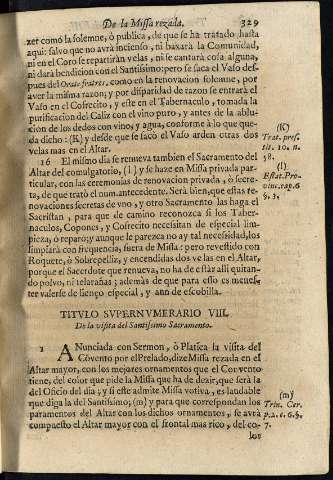 De la Missa rezada. 329
zer comó la solemne, ò publica, de que se ha tratado hasta
aqui: salvo que no avrà incienso, ni baxarà la Comunidad,
ni en el Coro se repartiràn velas, ni se cantarà cosa alguna,
ni darà bendicion con el Santissimo: pero se saca el Vaso des-
pues del Orate fratres, como en la renovacion solemne, por
aver la misma razon; y por disparidad de razon se entrarà el
Vaso en el Cofrecito, y este en el Tabernaculo, tomada la
purificacion del Caliz con el vino puro, y antes de la ablu-
cion de los dedos con vino, y agua, conforme à lo que que-
da dicho: (K) y desde que se sacò el Vaso arden otras dos
velas mas en el Altar.
(K)
Trat. pref.
tit. 10. n.
58.
16 El mismo dia se renueva tambien el Sacramento del
Altar del comulgatorio, (l) y se haze en Missa privada par-
ticular, con las ceremonias de renovacion privada, ò secre-
ta, de que tratò el num. antecedente. Serà bien, que estas re-
novaciones secretas de vno, y otro Sacramento las haga el
Sacristan, para que de camino reconozca si los Taber-
naculos, Copones, y Cofrecito necesitan de especial lim-
pieza, ò reparo; y aunque le parezca no ay tal necessidad, los
limpiarà con frequencia, fuera de Missa: pero revestido con
Roquete, ò Sobrepelliz, y encendidas dos velas en el Altar,
porque el Sacerdote que renueva, no ha de estàr alli quitan-
do polvo, ni telarañas; ademàs de que para esso es menes-
ter valerse de lienço especial, y aun de escobilla.
(l)
Estat. Pro-
vinc. cap. 6
§. 3.
TITVLO SVPERNVMERARIO VIII.
De la visita del Santissimo Sacramento.
1 ANunciada con Sermon, ò Platica la visita del
Cõvento por el Prelado, dize Missa rezada en el
Altar mayor, con los mejores ornamentos que el Convento
tiene, del color que pide la Missa que ha de dezir, que serà la
del Oficio del dia, y si este admite Missa votiva, es laudable
que diga la del Santissimo; (m) y para que correspondan los
paramentos del Altar con los dichos ornamentos, se avrà
compuesto el Altar mayor con el frontal mas rico, del co-
lor
(m)
Trin. Cer.
p. 2. c. 6. §.
7.